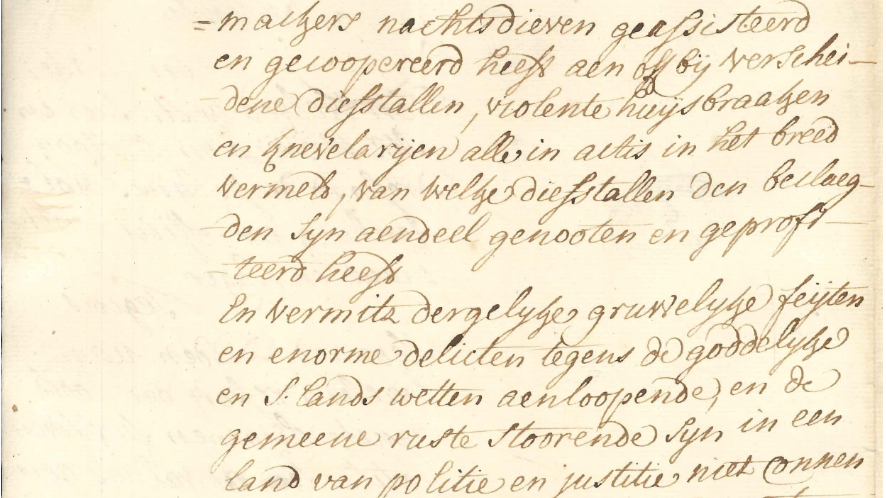 =mackers nachtsdieven geassisteerd
en gecoopereerd heeft aen off bij verschei-
dene diefstallen, violente huijsbraacken
en knevelarijen alle in actis in het breed
vermeld, van welke diefstallen den beclaeg-
den syn aendeel genooten en geprofi-
teerd heeft
En vermits dergelyke gruwelyke feijten
en enorme delicten tegens de goddelyke
en S: lands wetten aenloopende, en de
gemeene ruste stoorende syn in een
land van politie en justitie niet connen